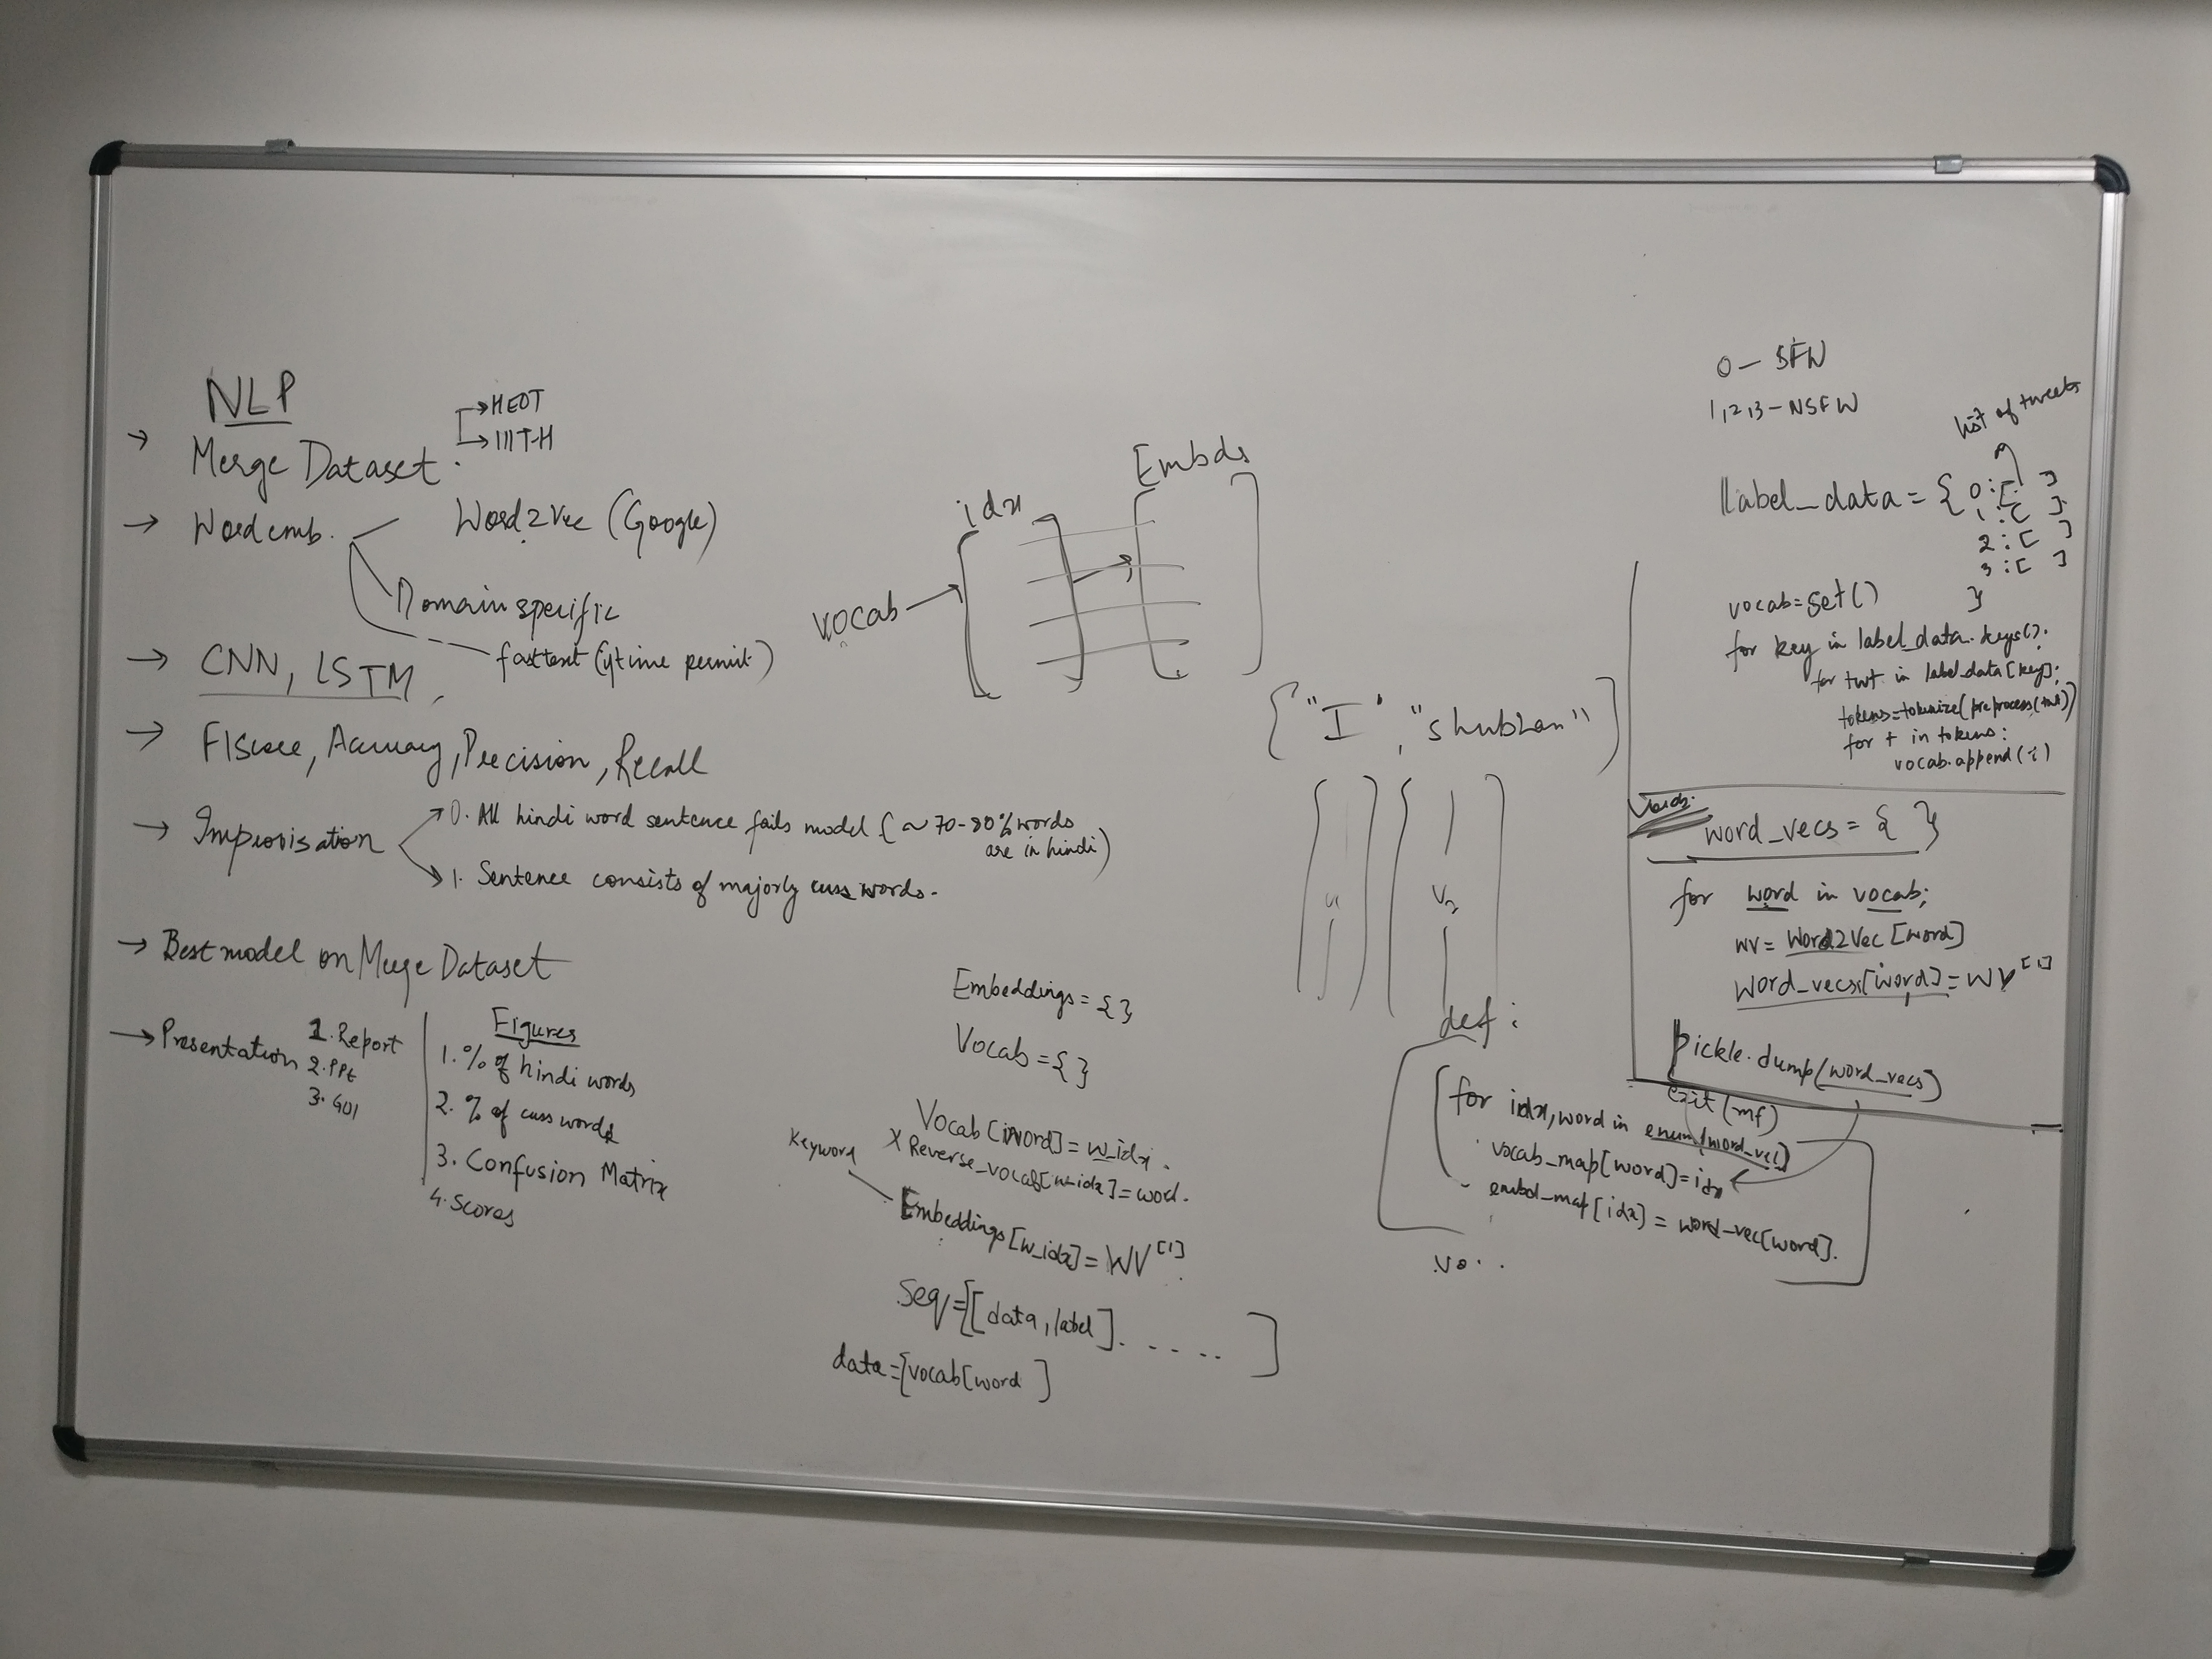 NLP
→ Merge Dataset. → HEOT
→ IIIT-H
→ Word emb. Word2Vec (Google)
Domain specific
fasttext (if time permit)
→ CNN, LSTM,
→ F1score, Accuracy, Precision, Recall
→ Improvisation
0. All hindi word sentence fails model (~70-80% words
are in hindi)
1. Sentence consists of majorly cuss words.
→ Best model on Merge Dataset
→ Presentation
1. Report
2. PPt
3. GUI
Figures
1. % of hindi words
2. % of cuss words
3. Confusion Matrix
4. Scores
vocab → idx → Embds
["I", "shubham"]
V2
Embeddings = { }
Vocab = { }
Vocab[word] = w_idx.
X Reverse_vocab[w_idx] = word.
Keyword
Embeddings[w_idx] = WV[1]
Seq = [[data, label]. . . . . . ]
data = [vocab[word ]
def :
for idx, word in enum(word_vec)
vocab_map[word] = idx
embd_map[idx] = word_vec[word].
vo. .
0 - SFW
1,2,3 - NSFW
list of tweets
label_data = { 0:[ ]
1:[ ],
2:[ ]
3:[ ]
}
vocab = set()
for key in label_data.keys():
for twt in label_data[key]:
tokens = tokenize(preprocess(twt))
for t in tokens:
vocab.append(i)
word_vecs = { }
for word in vocab;
wv = Word2Vec[word]
word_vecs[word] = WV[1]
pickle.dump(word_vecs)
exit(mf)